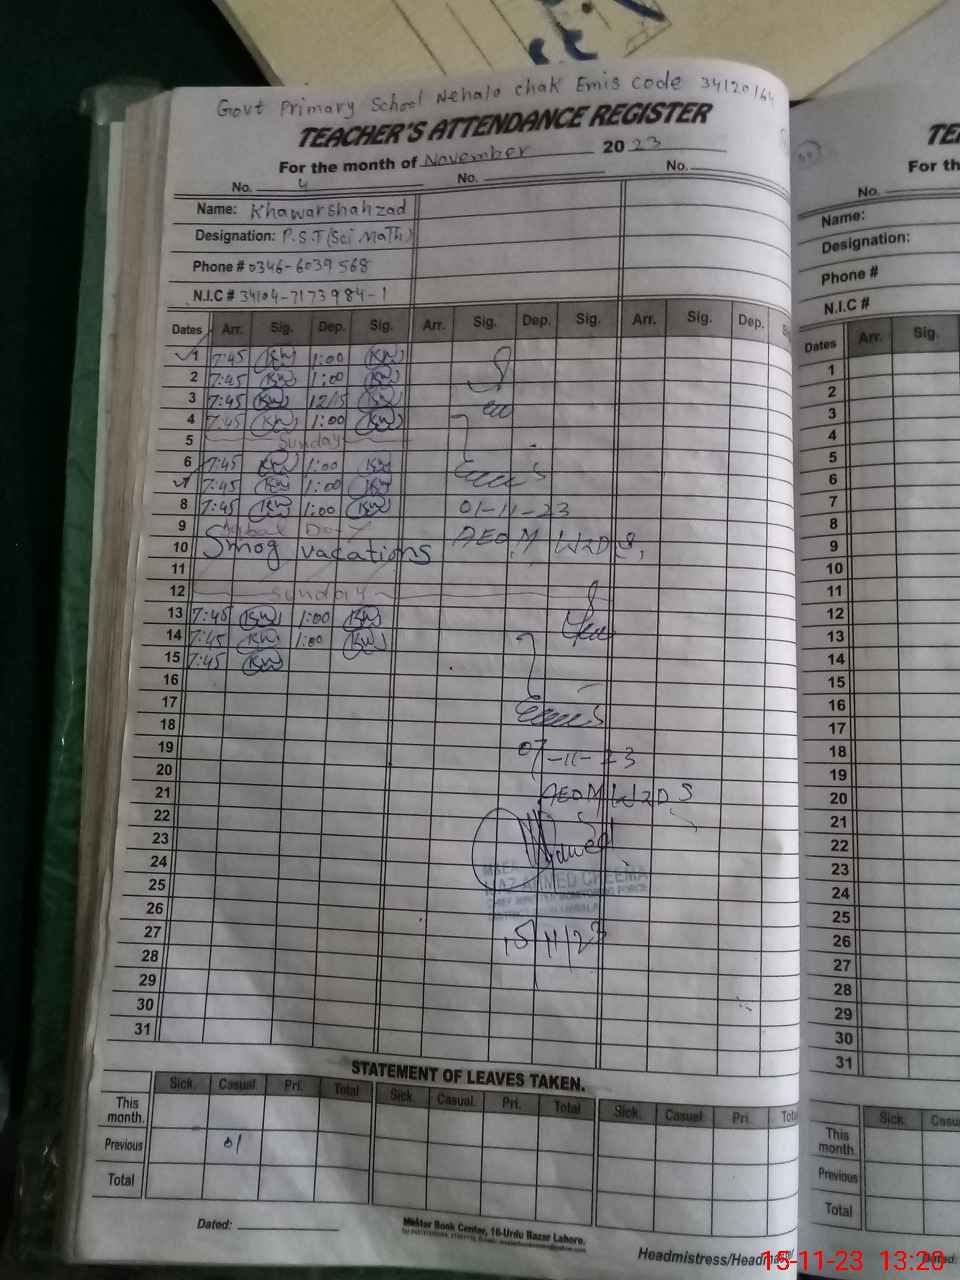 Govt Primary School Nehalo chak Emis code 34120164
TEACHER'S ATTENDANCE REGISTER
For the month of November 2023
No. 4 No. No.
Name: Khawarshahzad
Designation: P.S.T (Sci Math)
Phone # 0346-6039568
N.I.C # 34104-7173984-1
Dates Arr. Sig. Dep. Sig. Arr. Sig. Dep. Sig. Arr. Sig. Dep.
1 7:45 1:00
2 7:45 1:00
3 7:45 12/15
4 7:45 1:00
5 Sunday
6 7:45 1:00
7 7:45 1:00
8 7:45 1:00 01-11-23
9 Iqbal Day
10 Smog vacations AEO M W2DS
11
12 Sunday
13 7:45 1:00
14 7:45 1:00
15 7:45
16
17
18
19 07-11-23
20
21 AEO M W2DS
22
23
24
CHIEF MINISTER MONITORING FORCE
25
26
27 15/11/23
28
29
30
31
STATEMENT OF LEAVES TAKEN.
Sick. Casual Pri. Total Sick. Casual. Pri. Total Sick. Casual. Pri. Total
This month.
Previous 01
Total
Dated:
Mehtar Book Center, 16-Urdu Bazar Lahore.
Headmistress/Headmas/
TE
For th
No.
Name:
Designation:
Phone #
N.I.C #
Dates Arr. Sig.
1
2
3
4
5
6
7
8
9
10
11
12
13
14
15
16
17
18
19
20
21
22
23
24
25
26
27
28
29
30
31
Sick. Casu
This month
Previous
Total
Dated:
15-11-23 13:20